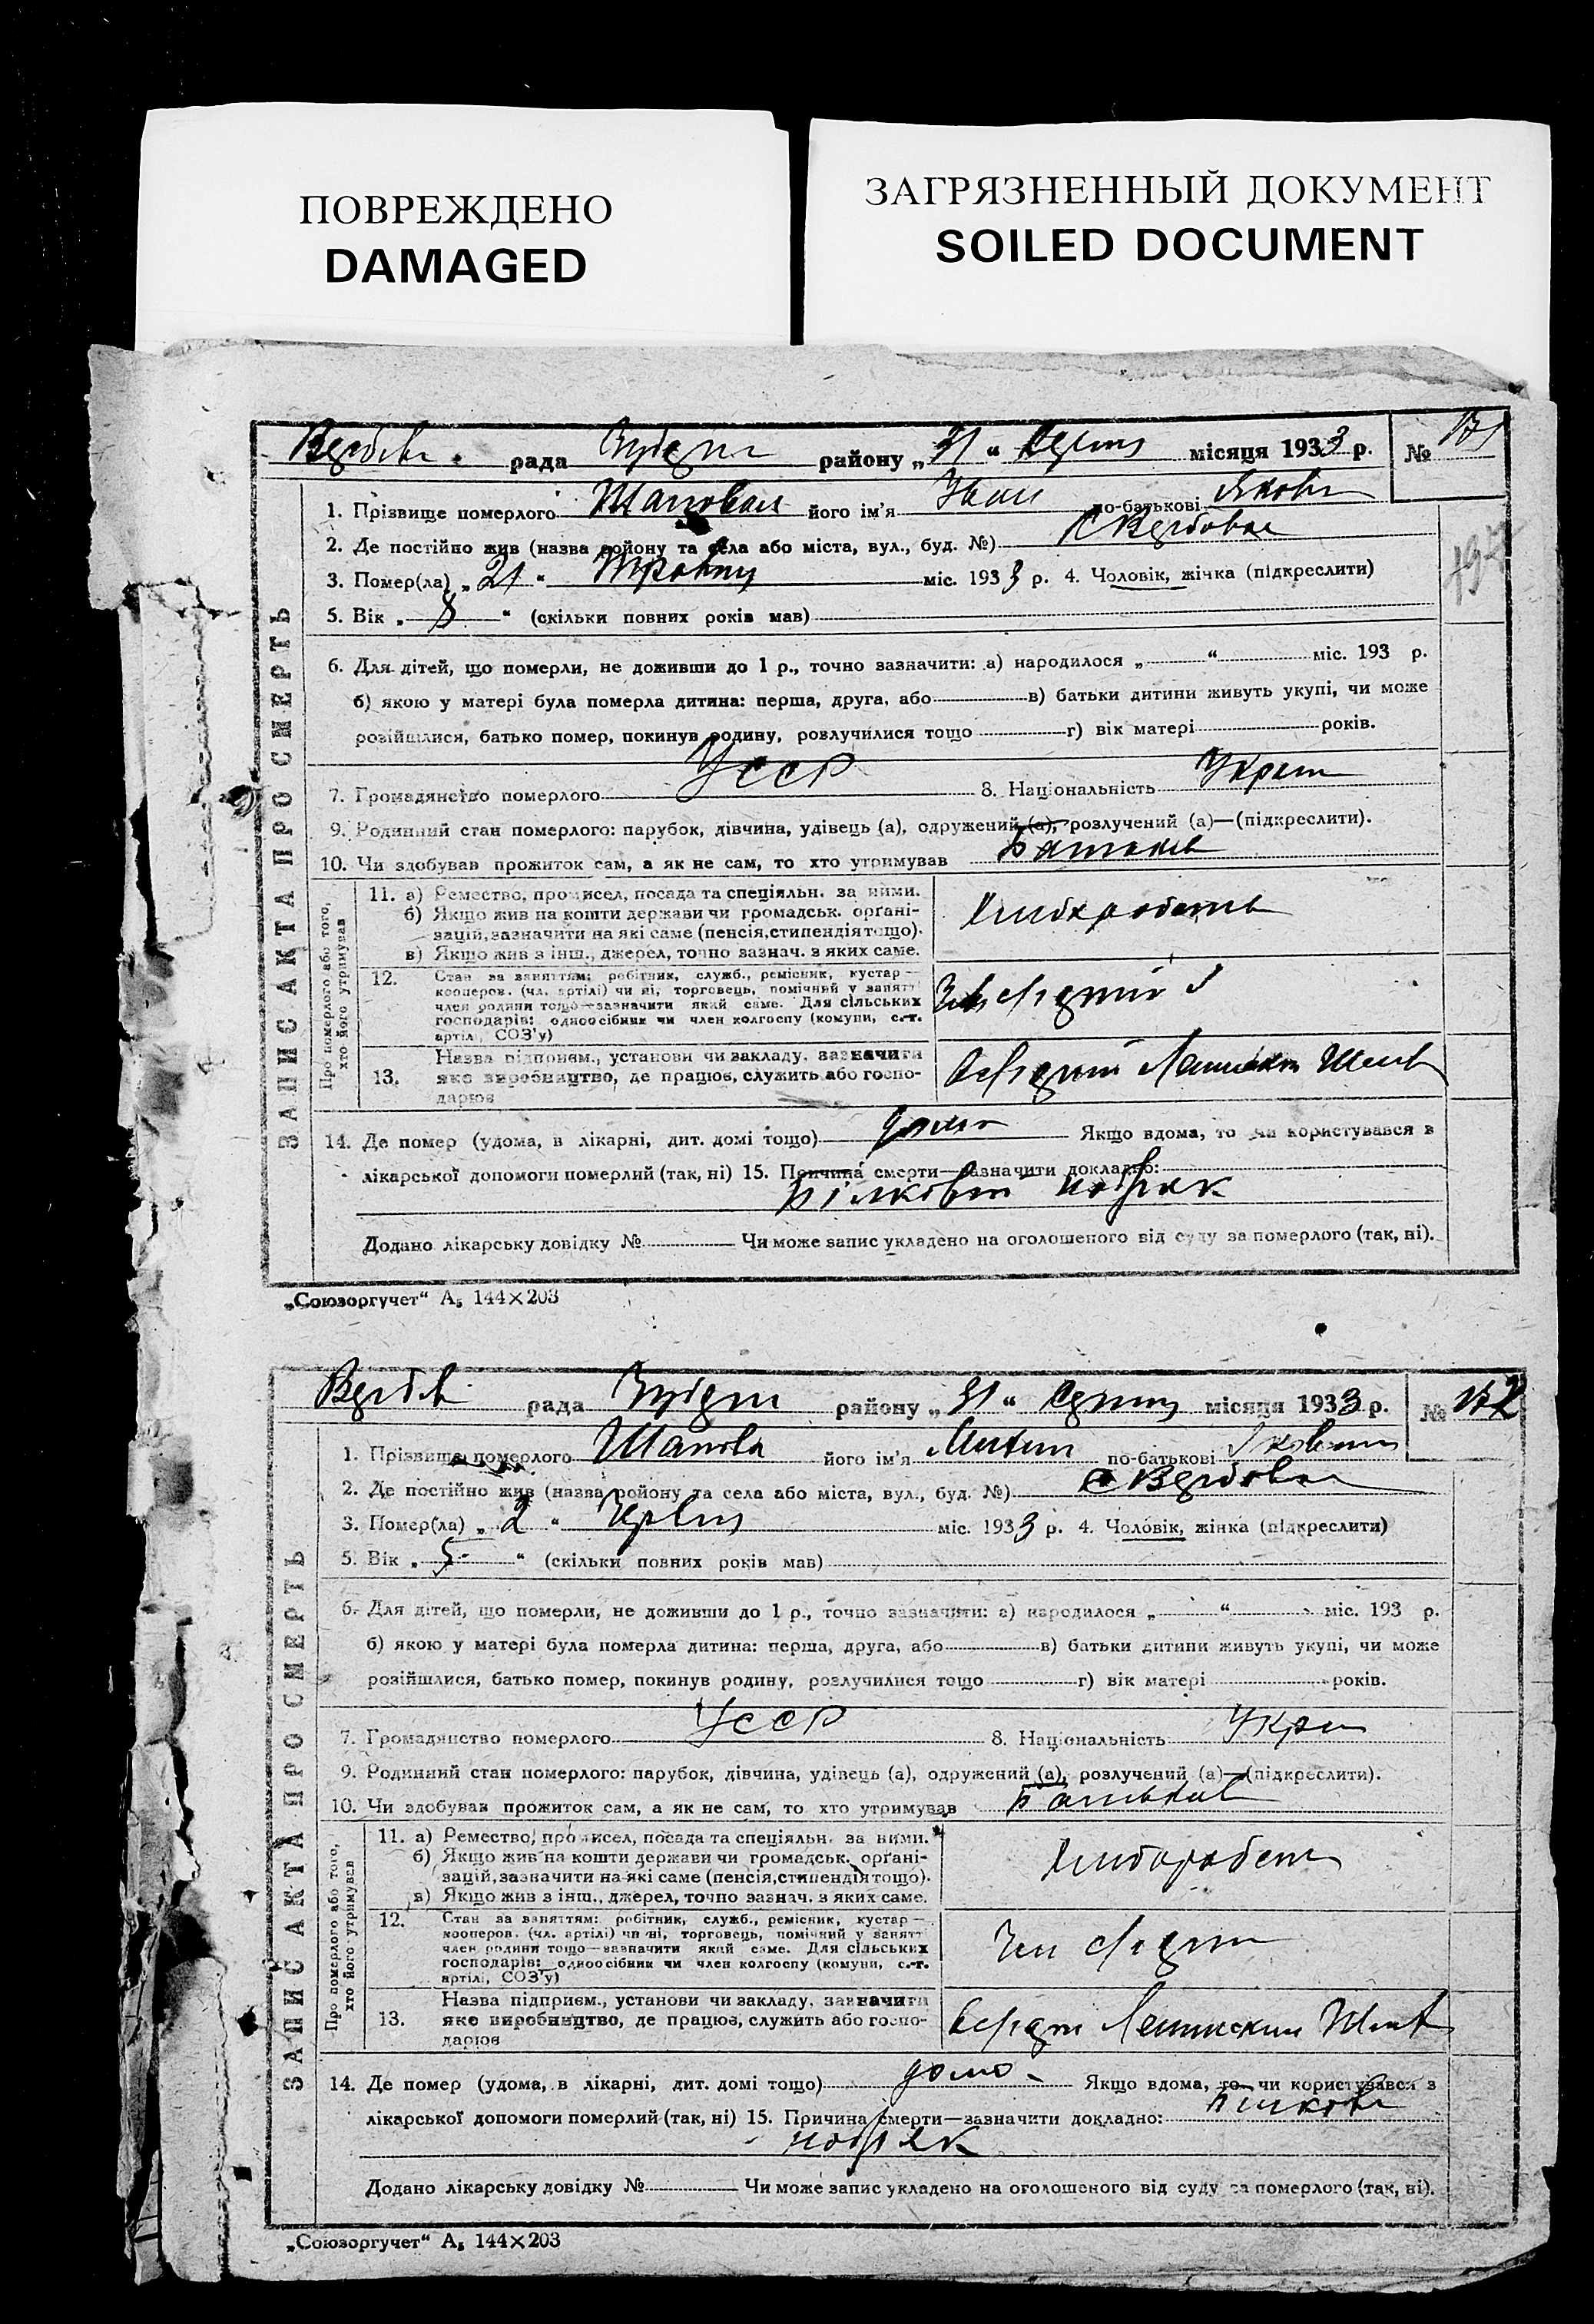 ПОВРЕЖДЕНО
DAMAGED
ЗАГРЯЗНЕННЫЙ ДОКУМЕНТ
SOILED DOCUMENT
рада району „31“ місяця 1933 р. № 171
1. Прізвище померлого Шаповал його ім'я Іван по-батькові
2. Де постійно жив (назва району та села або міста, вул., буд. №)
3. Помер(ла) „21“ Травня міс. 1933 р. 4. Чоловік, жінка (підкреслити)
5. Вік „8“ (скільки повних років мав)
6. Для дітей, що померли, не доживши до 1 р., точно зазначити: а) народилося „ “ міс. 193 р.
б) якою у матері була померла дитина: перша, друга, або в) батьки дитини живуть укупі, чи може
розійшлися, батько помер, покинув родину, розлучилися тощо г) вік матері років.
7. Громадянство померлого УССР 8. Національність
9. Родинний стан померлого: парубок, дівчина, удівець (а), одружений (а), розлучений (а)—(підкреслити).
10. Чи здобував прожиток сам, а як не сам, то хто утримував
ЗАПИС АКТА ПРО СМЕРТЬ
Про померлого або того,
хто його утримував
11. а) Ремество, промисел, посада та спеціяльн. за ними.
б) Якщо жив на кошти держави чи громадськ. органі-
зацій, зазначити на які саме (пенсія, стипендія тощо).
в) Якщо жив з інш., джерел, точно зазнач. з яких саме.
12. Стан за заняттям: робітник, служб., ремісник, кустар—
кооперов. (чл. артілі) чи ні, торговець, помічний у занятт
член родини тощо—зазначити який саме. Для сільських
господарів: одноосібник чи член колгоспу (комуни, с.-г.
артілі, СОЗ'у)
13. Назва підприєм., установи чи закладу, зазначити
яке виробництво, де працює, служить або госпо-
дарює
14. Де помер (удома, в лікарні, дит. домі тощо) дома Якщо вдома, то чи користувався з
лікарської допомоги померлий (так, ні) 15. Причина смерти—зазначити докладно:
Додано лікарську довідку № Чи може запис укладено на оголошеного від суду за померлого (так, ні).
„Союзоргучет“ А₅ 144×203
рада району „31“ місяця 1933 р. № 172
1. Прізвище померлого його ім'я по-батькові
2. Де постійно жив (назва району та села або міста, вул., буд. №)
3. Помер(ла) „2“ міс. 1933 р. 4. Чоловік, жінка (підкреслити)
5. Вік „5“ (скільки повних років мав)
6. Для дітей, що померли, не доживши до 1 р., точно зазначити: а) народилося „ “ міс. 193 р.
б) якою у матері була померла дитина: перша, друга, або в) батьки дитини живуть укупі, чи може
розійшлися, батько помер, покинув родину, розлучилися тощо г) вік матері років.
7. Громадянство померлого УССР 8. Національність
9. Родинний стан померлого: парубок, дівчина, удівець (а), одружений (а), розлучений (а)—(підкреслити).
10. Чи здобував прожиток сам, а як не сам, то хто утримував
ЗАПИС АКТА ПРО СМЕРТЬ
Про померлого або того,
хто його утримував
11. а) Ремество, промисел, посада та спеціяльн. за ними.
б) Якщо жив на кошти держави чи громадськ. органі-
зацій, зазначити на які саме (пенсія, стипендія тощо).
в) Якщо жив з інш., джерел, точно зазнач. з яких саме.
12. Стан за заняттям: робітник, служб., ремісник, кустар—
кооперов. (чл. артілі) чи ні, торговець, помічний у занятт
член родини тощо—зазначити який саме. Для сільських
господарів: одноосібник чи член колгоспу (комуни, с.-г.
артілі, СОЗ'у)
13. Назва підприєм., установи чи закладу, зазначити
яке виробництво, де працює, служить або госпо-
дарює
14. Де помер (удома, в лікарні, дит. домі тощо) дома Якщо вдома, то чи користувався з
лікарської допомоги померлий (так, ні) 15. Причина смерти—зазначити докладно:
Додано лікарську довідку № Чи може запис укладено на оголошеного від суду за померлого (так, ні).
„Союзоргучет“ А₅ 144×203